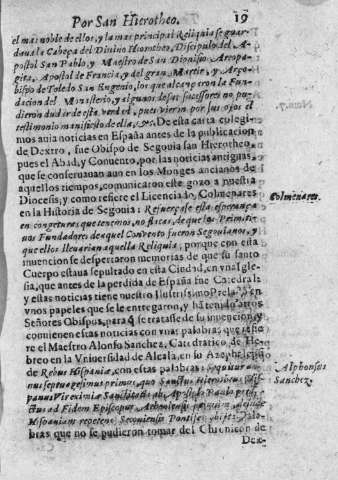 Por San Hierotheo. 19
el mas noble de ellos, y la mas principal Reliquia se guar-
daua la Cabeça del Diuino Hierotheo, Discipulo del A-
postol San Pablo, y Maestro de San Dionisio Areopa-
gita, Apostol de Francia, y del gran Martir, y Arço-
bispo de Toledo San Eugenio, lo que alcançaron la Fun-
dacion del Monasterio, y algunos de sus successores no pu-
dieron dudar de esta verdad, pues vieron por sus ojos el
testimonio manifiesto de ella, &c. De esta carta colegi-
mos auia noticias en España antes de la publicacion
de Dextro, fue Obispo de Segouia san Hierotheo,
pues el Abad, y Conuento, por las noticias antiguas,
que se conseruauan aun en los Monges ancianos de
aquellos tiempos, comunicaron este gozo a nuestra
Diocesis, y como refiere el Licenciado Colmenares
en la Historia de Segouia: Refuerçase esta esperança
en congeturas que tenemos, no flacas, de que los Primiti-
uos Fundadores de aquel Conuento fueron Segouianos, y
que ellos lleuarian aquella Reliquia; porque con esta
inuencion se despertaron memorias de que su santo
Cuerpo estaua sepultado en esta Ciudad, en vna Igle-
sia, que antes de la perdida de España fue Catedral:
y estas noticias tiene nuestro Ilustrissimo Prelado en
vnos papeles que se le entregaron, y han tenido otros
Señores Obispos, para q̃ se tratasse de su inuencion, y
conuienen estas noticias con vnas palabras que refie-
re el Maestro Alonso Sanchez, Catedratico de He-
breo en la Vniuersidad de Alcala, en su
de Rebus Hispaniæ, con estas palabras:
nus septuagesimus primus, quo Sanctus Hierotheus His-
panus Vir eximiæ Sanctitatis ab Apostolo Paulo
ctus ad Fidem Episcopus Atheniensis
Hispaniam repetens Segouiensis Pontifex
bras que no se pudieron tomar del Chronicon de
Dex-
Colmenares.
Alphonsus
Sanchez.